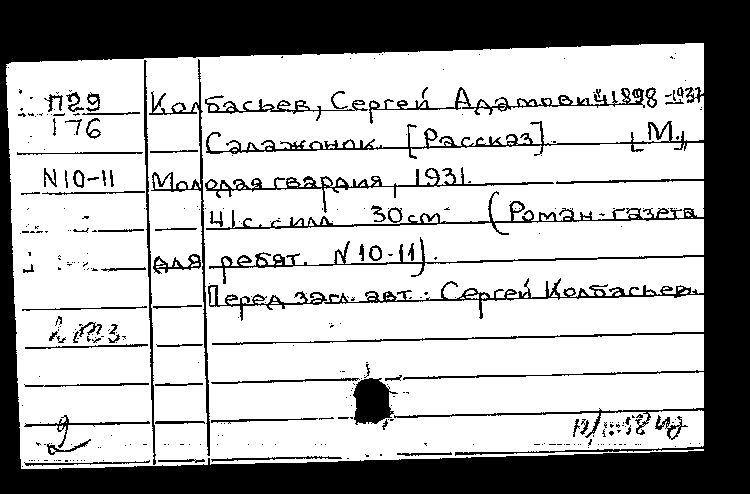 П29 Колбасьев, Сергей Адамович 1898-1937
Г76 Салажонок. [Рассказ]. [М.],
N10-11 Молодая гвардия, 1931.
41с. с илл 30см (Роман-газета
для ребят. N10-11).
Перед загл. авт.: Сергей Колбасьев.
2 экз.
2